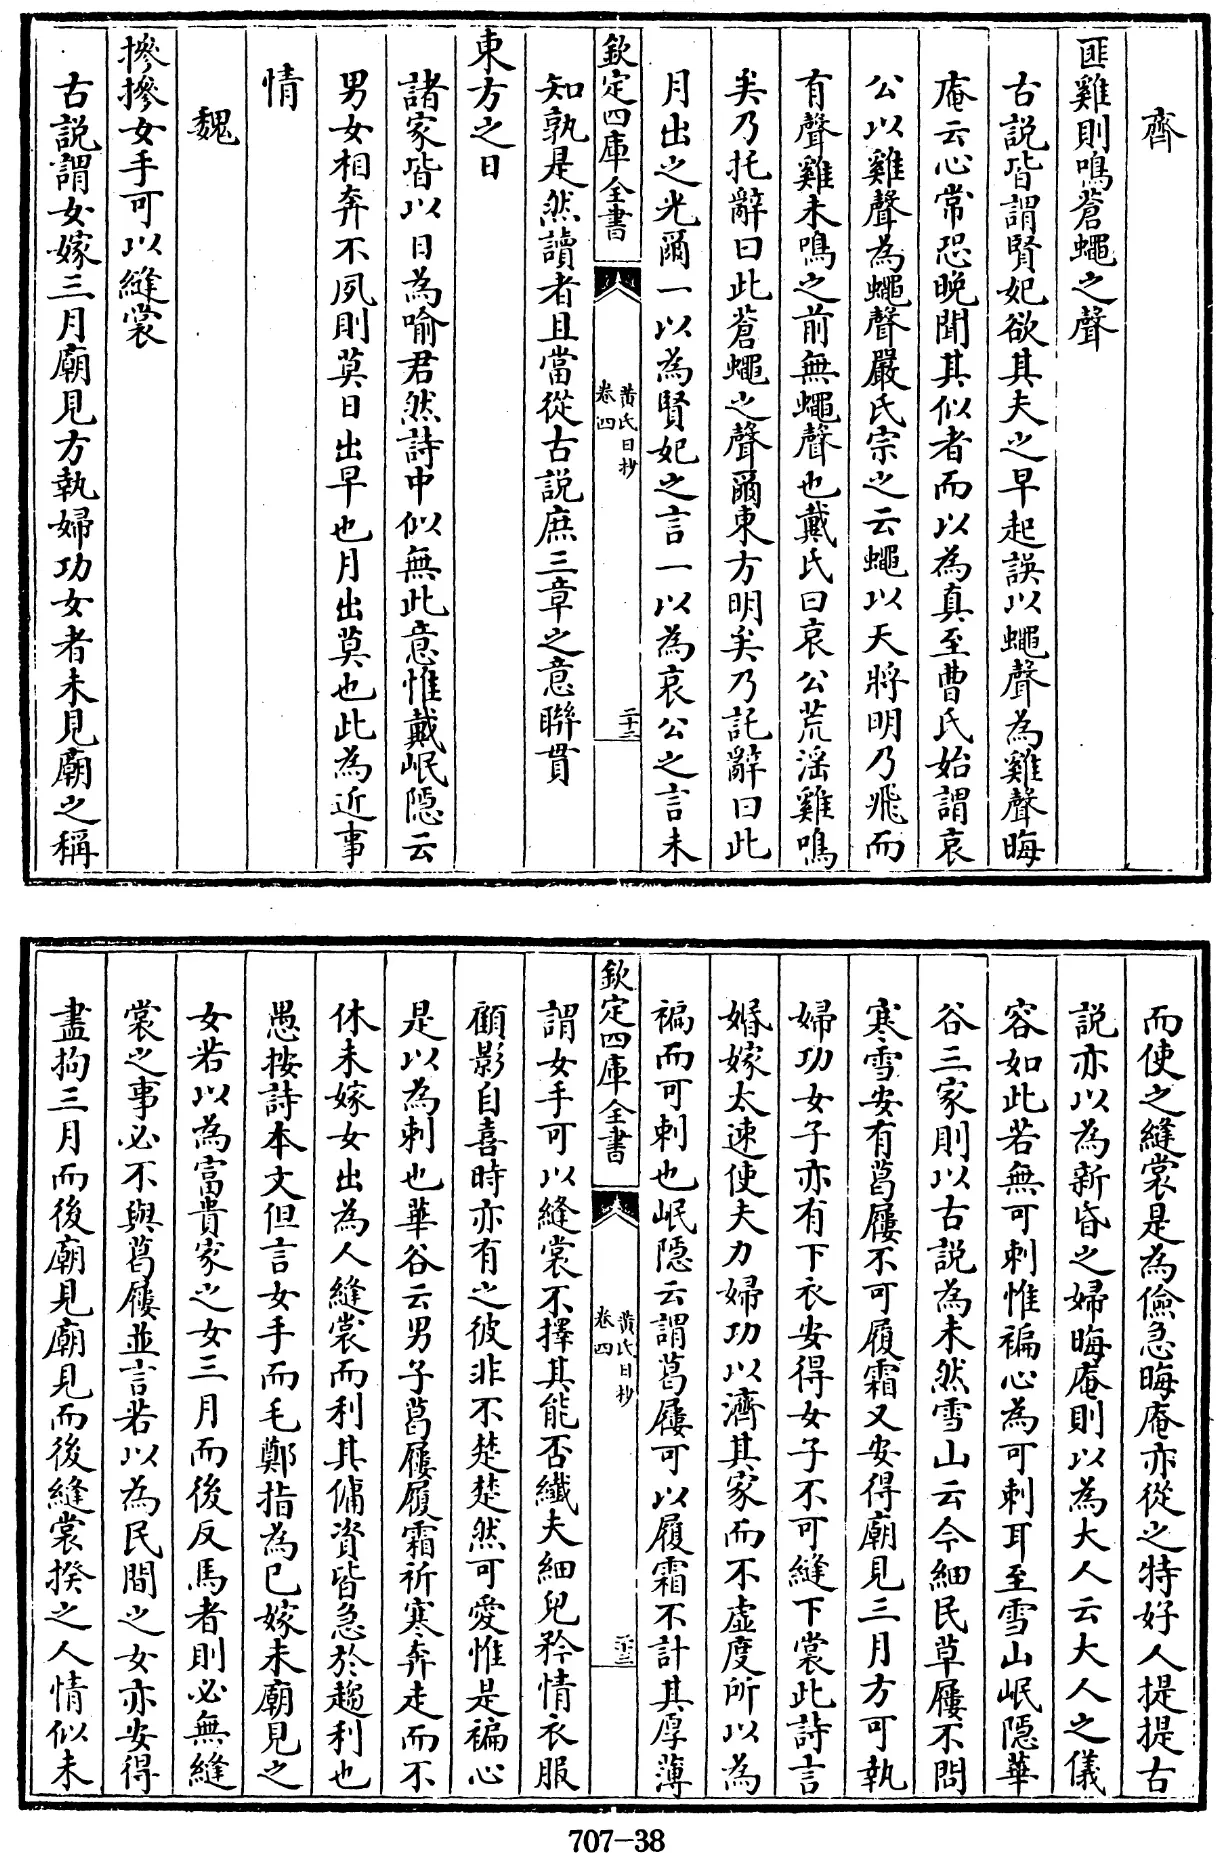 齊
匪雞則鳴蒼蠅之聲
古説皆謂賢妃欲其夫之早起誤以蠅聲為雞聲晦
庵云心常恐晚聞其似者而以為真至曹氏始謂哀
公以雞聲為蠅聲嚴氏宗之云蠅以天將明乃飛而
有聲雞未鳴之前無蠅聲也戴氏曰哀公荒滛雞鳴
矣乃托辭曰此蒼蠅之聲爾東方明矣乃託辭曰此
月出之光爾一以為賢妃之言一以為哀公之言未
欽定四庫全書
黄氏日抄
卷四
二十二
知孰是然讀者且當從古説庶三章之意聯貫
東方之日
諸家皆以日為喻君然詩中似無此意惟戴岷隠云
男女相奔不夙則莫日出早也月出莫也此為近事
情
魏
摻摻女手可以縫裳
古説謂女嫁三月廟見方執婦功女者未見廟之稱
而使之縫裳是為儉急晦庵亦從之特好人提提古
説亦以為新昏之婦晦庵則以為大人云大人之儀
容如此若無可刺惟褊心為可刺耳至雪山岷隠華
谷三家則以古説為未然雪山云今細民草屨不問
寒雪安有葛屨不可履霜又安得廟見三月方可執
婦功女子亦有下衣安得女子不可縫下裳此詩言
婚嫁太速使夫力婦功以濟其家而不虚度所以為
褊而可刺也岷隠云謂葛屨可以履霜不計其厚薄
欽定四庫全書
黄氏日抄
卷四
二十三
謂女手可以縫裳不擇其能否纎夫細兒矜情衣服
顧影自喜時亦有之彼非不楚楚然可愛惟是褊心
是以為刺也華谷云男子葛屨履霜祈寒奔走而不
休未嫁女出為人縫裳而利其傭資皆急於趨利也
愚按詩本文但言女手而毛鄭指為已嫁未廟見之
女若以為富貴家之女三月而後反馬者則必無縫
裳之事必不與葛屨並言若以為民間之女亦安得
盡拘三月而後廟見廟見而後縫裳揆之人情似未
707-38